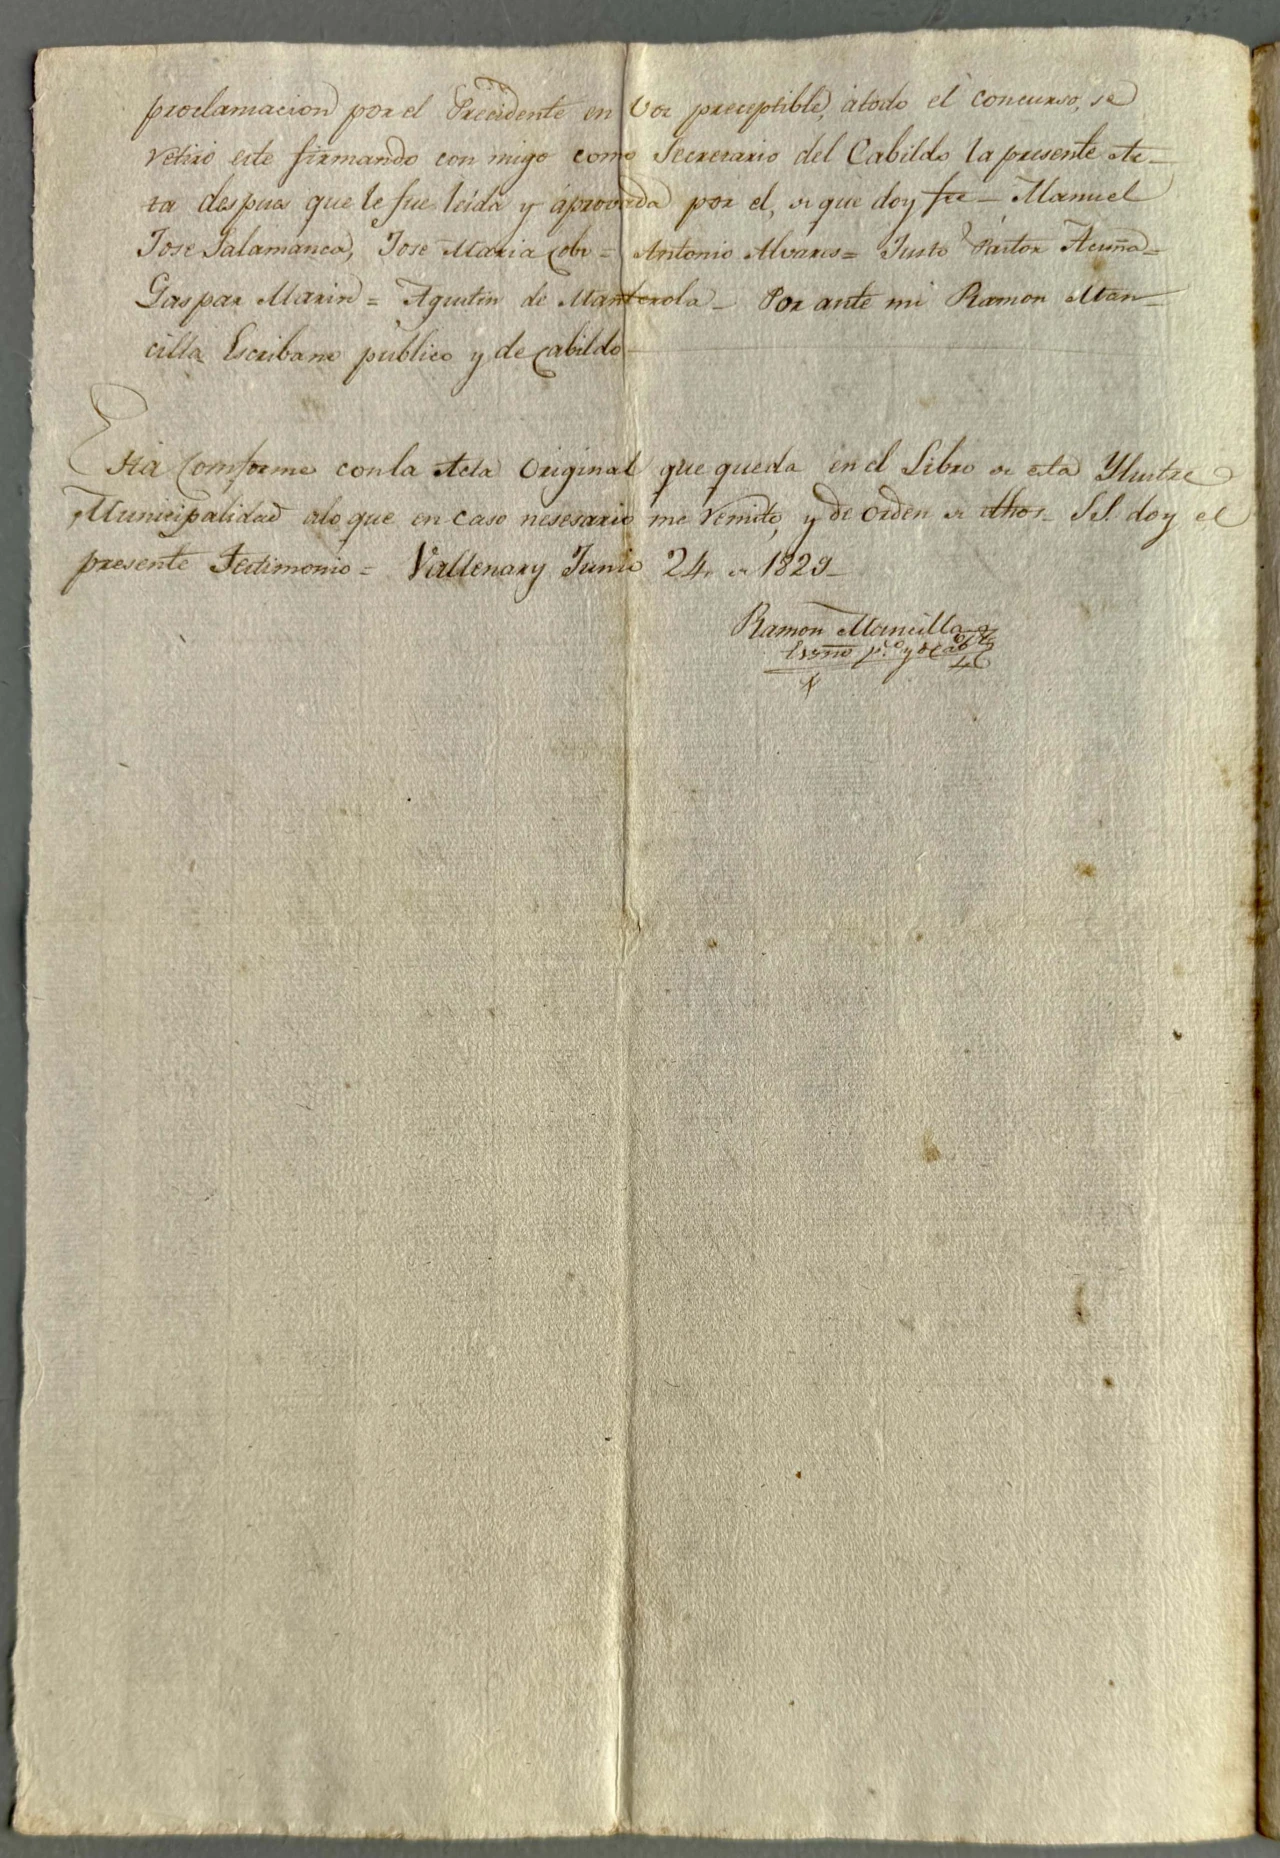 proclamacion por el Precidente en Voz preceptible, átodo el concurso, se
retiró este firmando con migo como Secretario del Cabildo la presente Ac-
ta despues que le fue leída y áprovada por el, de que doy fee - Manuel
Jose Salamanca, Jose Maria Cobo = Antonio Alvares = Justo Pastor Acuña =
Gaspar Marin = Agustin de Manterola - Por ante mi Ramon Man-
cilla Escribano publico y de Cabildo
Está Comforme con la Acta Original que queda en el Libro de esta Ylustre
Municipalidad alo que en caso nesesario me remito, y de orden de dhos. SS. doy el
presente Testimonio = Vallenary Junio 24, de 1829 -
Ramon Mancilla
Esno. pco. y de Cabdo